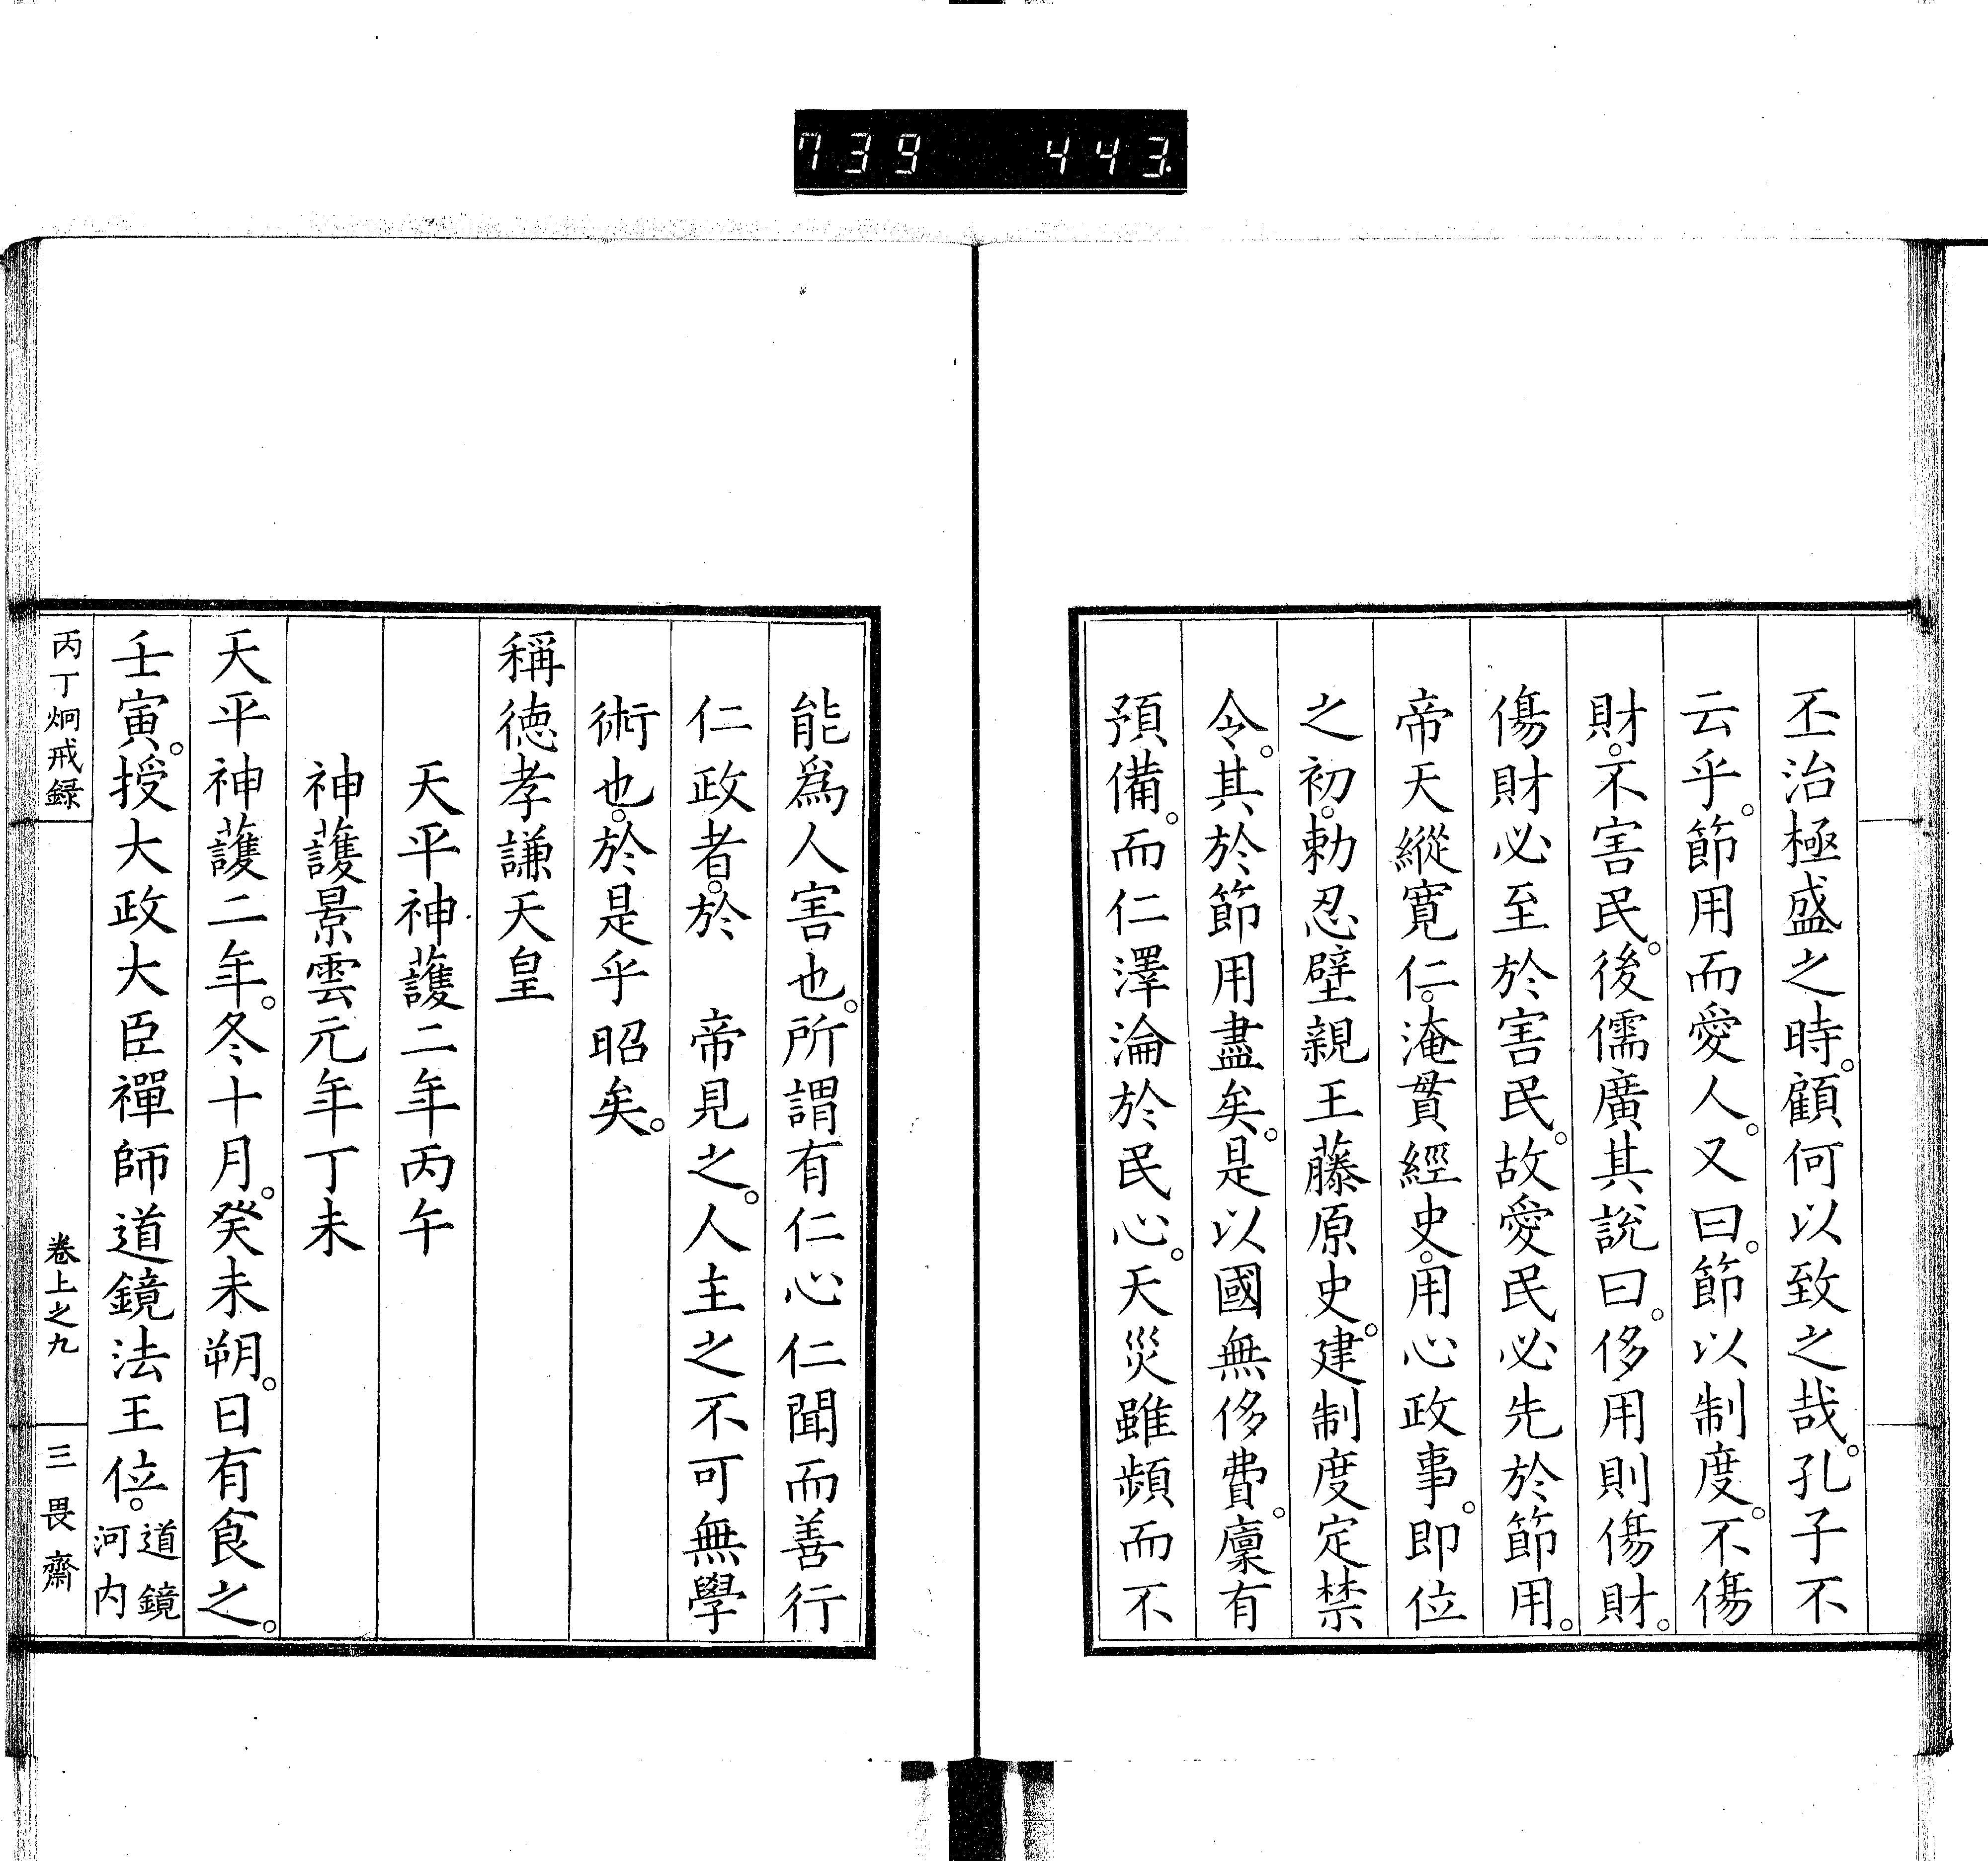 739 443
丕治極盛之時。顧何以致之哉。孔子不
云乎。節用而愛人。又曰。節以制度。不傷
財。不害民。後儒廣其說曰。侈用則傷財。
傷財必至於害民。故愛民必先於節用。
帝天縱寛仁。淹貫經史。用心政事。即位
之初。勅忍壁親王藤原史。建制度定禁
令。其於節用盡矣。是以國無侈費。廩有
預備。而仁澤淪於民心。天災雖頻而不
能爲人害也。所謂有仁心仁聞而善行
仁政者。於　帝見之。人主之不可無學
術也。於是乎昭矣。
稱徳孝謙天皇
天平神護二年丙午
神護景雲元年丁未
天平神護二年。冬十月。癸未朔。日有食之。
壬寅。授大政大臣禪師道鏡法王位。道鏡
河内
丙丁炯戒録
卷上之九
三畏齋